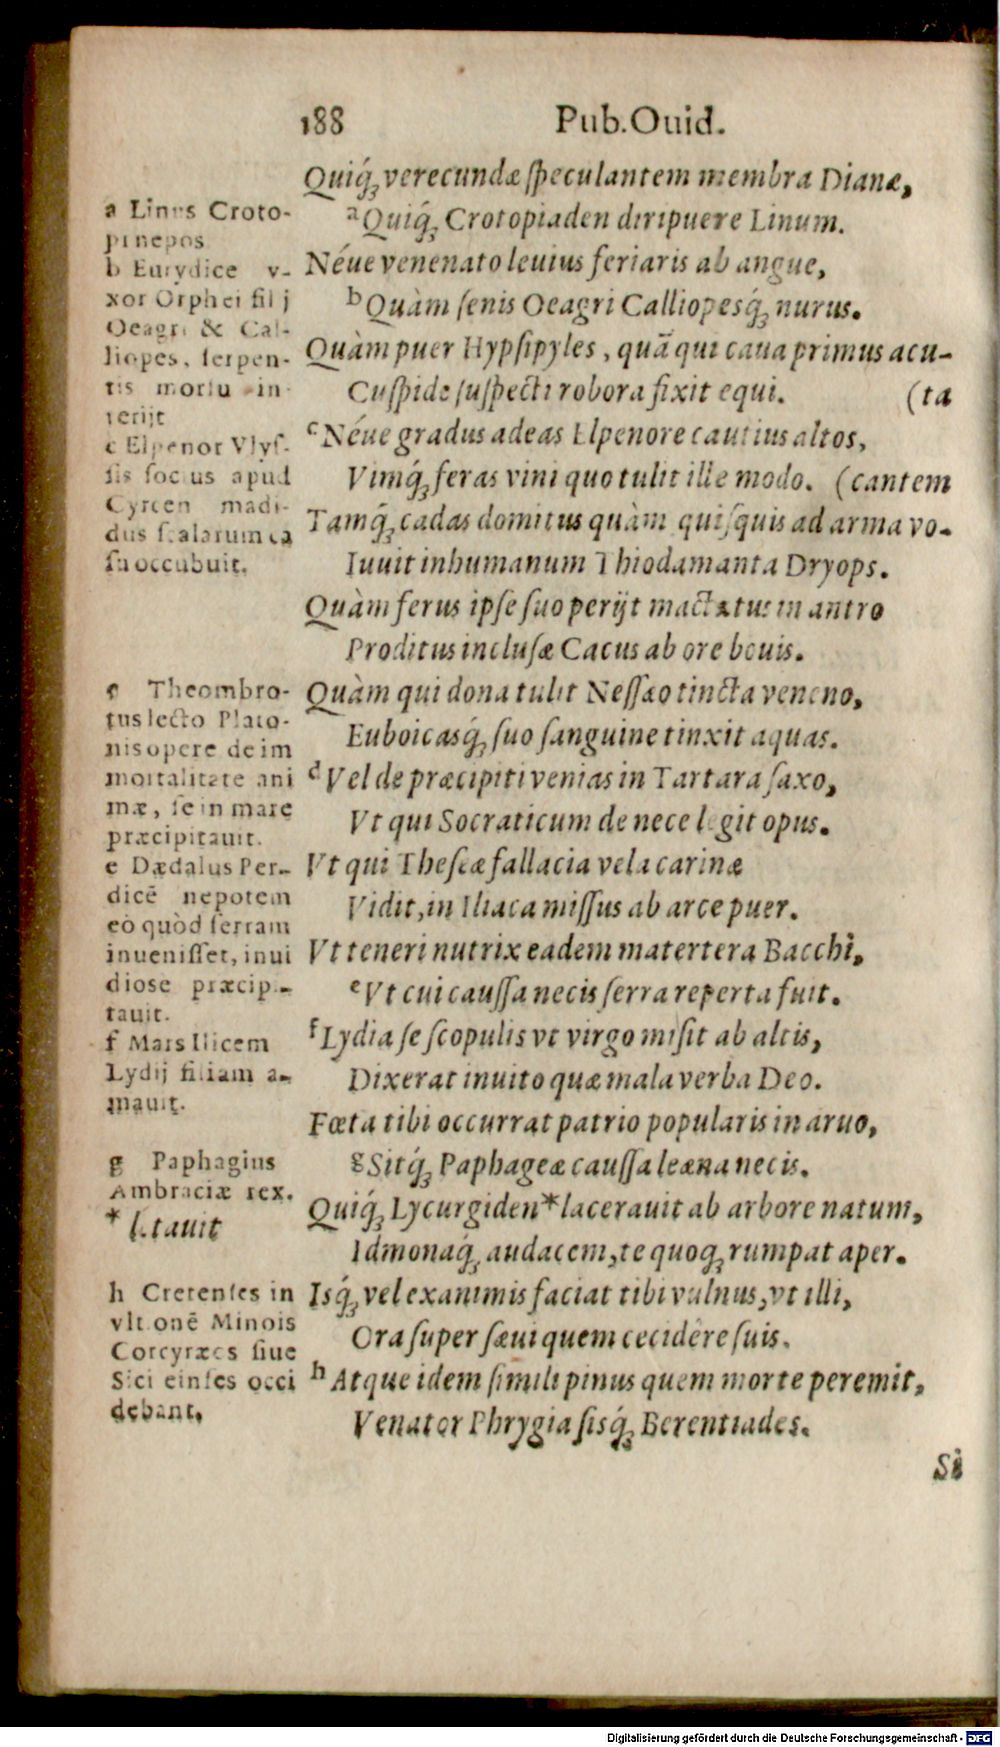 188 Pub.Ouid.
Quiq́; verecundæ ſpeculantem membra Dianæ,
ᵃQuiq́; Crotopiaden diripuere Linum.
Néue venenato leuius feriaris ab angue,
ᵇQuàm ſenis Oeagri Calliopesq́; nurus.
Quàm puer Hypſipyles, quã qui caua primus acu-
Cuſpide ſuſpecti robora fixit equi. (ta
ᶜNéue gradus adeas Elpenore cautius altos,
Vimq́; feras vini quo tulit ille modo. (cantem
Tamq́; cadas domitus quàm quiſquis ad arma vo-
Iuuit inhumanum Thiodamanta Dryops.
Quàm ferus ipſe ſuo perijt mactatus in antro
Proditus incluſæ Cacus ab ore bouis.
Quàm qui dona tulit Neſſæo tincta veneno,
Euboicasq́; ſuo ſanguine tinxit aquas.
ᵈVel de præcipiti venias in Tartara ſaxo,
Vt qui Socraticum de nece legit opus.
Vt qui Theſeæ fallacia vela carinæ
Vidit, in Iliaca miſſus ab arce puer.
Vt teneri nutrix eadem matertera Bacchi,
ᵉVt cui cauſſa necis ſerra reperta fuit.
ᶠLydia ſe ſcopulis vt virgo miſit ab altis,
Dixerat inuito quæ mala verba Deo.
Fœta tibi occurrat patrio popularis in aruo,
ᵍSitq́; Paphageæ cauſſa leæna necis.
Quiq́; Lycurgiden*lacerauit ab arbore natum,
Idmonaq́; audacem, te quoq; rumpat aper.
Isq́; vel exanimis faciat tibi vulnus, vt illi,
Ora ſuper ſæui quem cecidêre ſuis.
ʰAtque idem ſimili pinus quem morte peremit,
Venator Phrygia ſisq́; Berentiades.
Si
a Linus Croto-
pi nepos
b Eurydice v-
xor Orphei filij
Oeagri & Cal-
liopes, ſerpen-
tis morſu in-
terijt
c Elpenor Vlyſ-
ſis ſocius apud
Cyrcen madi-
dus ſcalarum ca
ſu occubuit.
e Theombro-
tus lecto Plato-
nis opere de im
mortalitate ani
mæ, ſe in mare
præcipitauit.
e Dædalus Per-
dicẽ nepotem
eò quòd ſerram
inueniſſet, inui
dioſe præcipi-
tauit.
f Mars Ilicem
Lydij filiam a-
mauit.
g Paphagius
Ambraciæ rex.
* l. tauit
h Cretenſes in
vltionẽ Minois
Corcyræos ſiue
Sicienſes occi
debant.
Digitalisierung gefördert durch die Deutsche Forschungsgemeinschaft - DFG